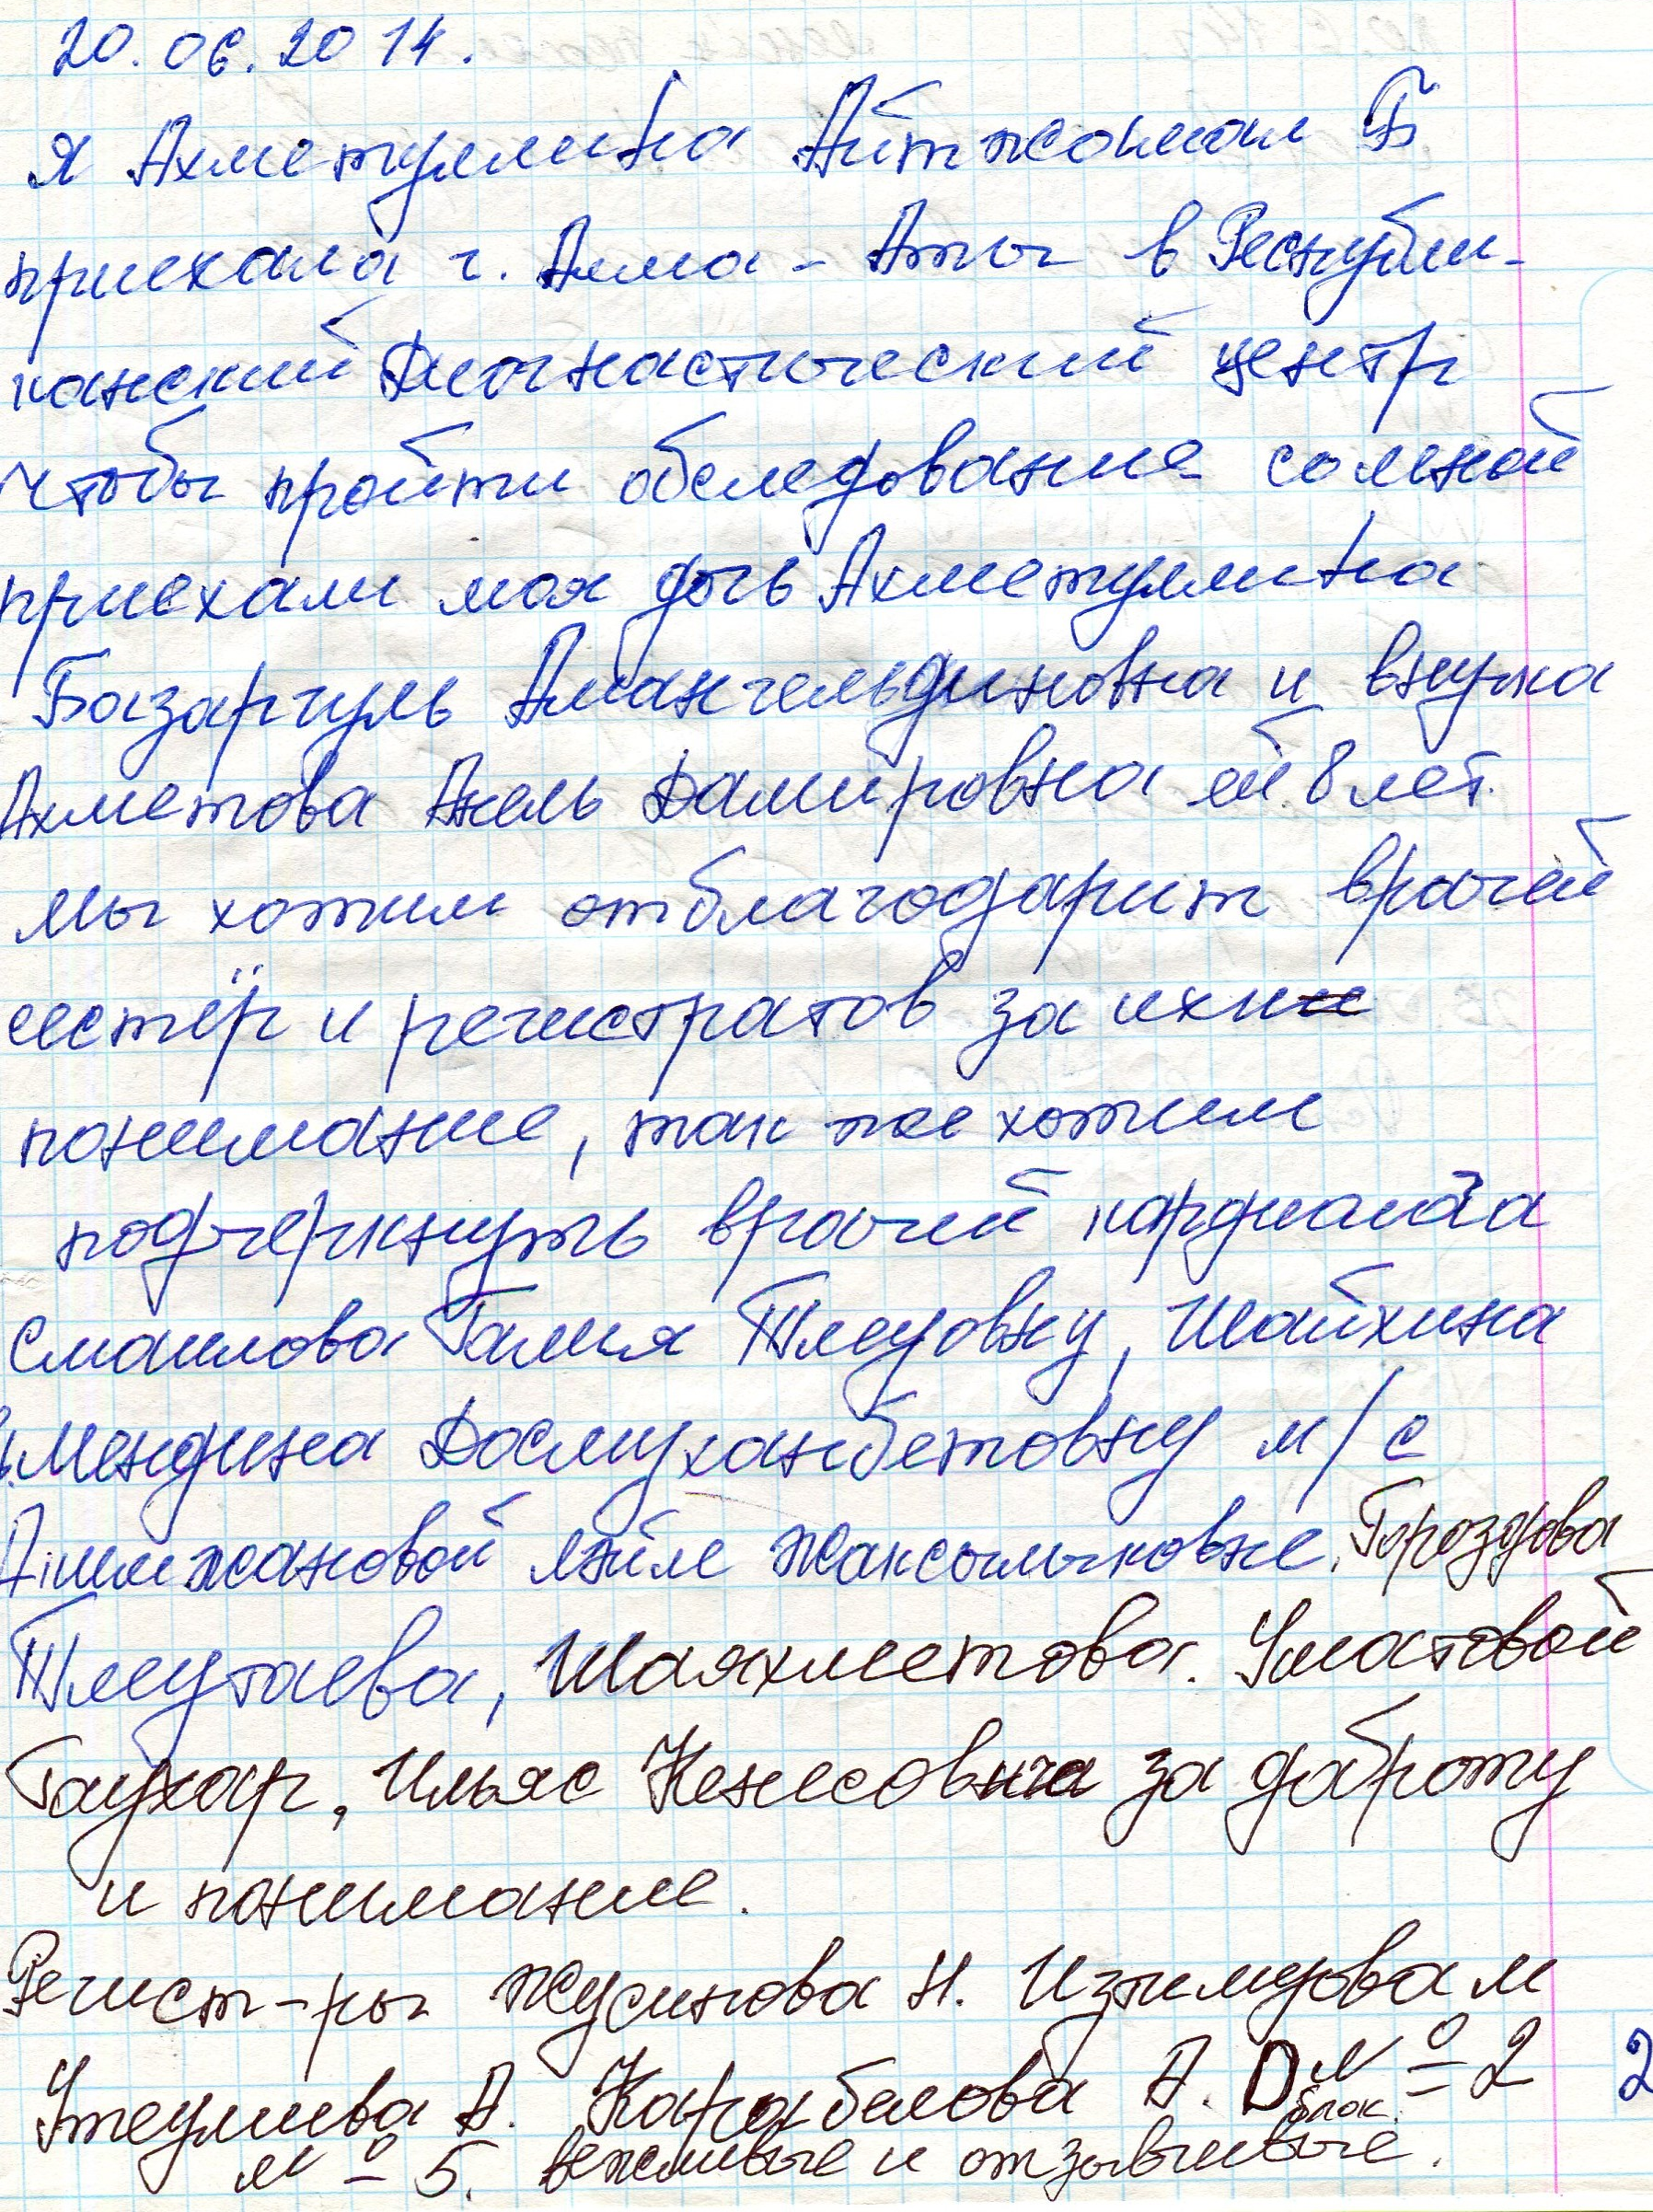 20.06.2014.
я Ахметуллина Айтжамал Б
приехала г. Алма-Аты в Республи-
канский Диагнастический центр
чтобы пройти обследование со мной
приехали моя дочь Ахметуллина
Базаргуль Амангельдиновна и внучка
Ахметова Анель Дамировна ей 8 лет.
мы хотим отблагодарит врачей
сестёр и регистратов за ихни
понимание, так же хотим
подчеркнуть врачей
Смаилова Галия Тлеуовну, Шайхина
Мендина Досмуханбетовну м/с
Ляйле Жаксылыковне. Гроздова
Тлеутаева, Шаяхметова.
Гаухар, Ильяс Кенесовича за доброту
и понимание.
Регист-ры Жусипова Н. М
А. А. D блок №2
№5. вежливые и отзывчивые.
2